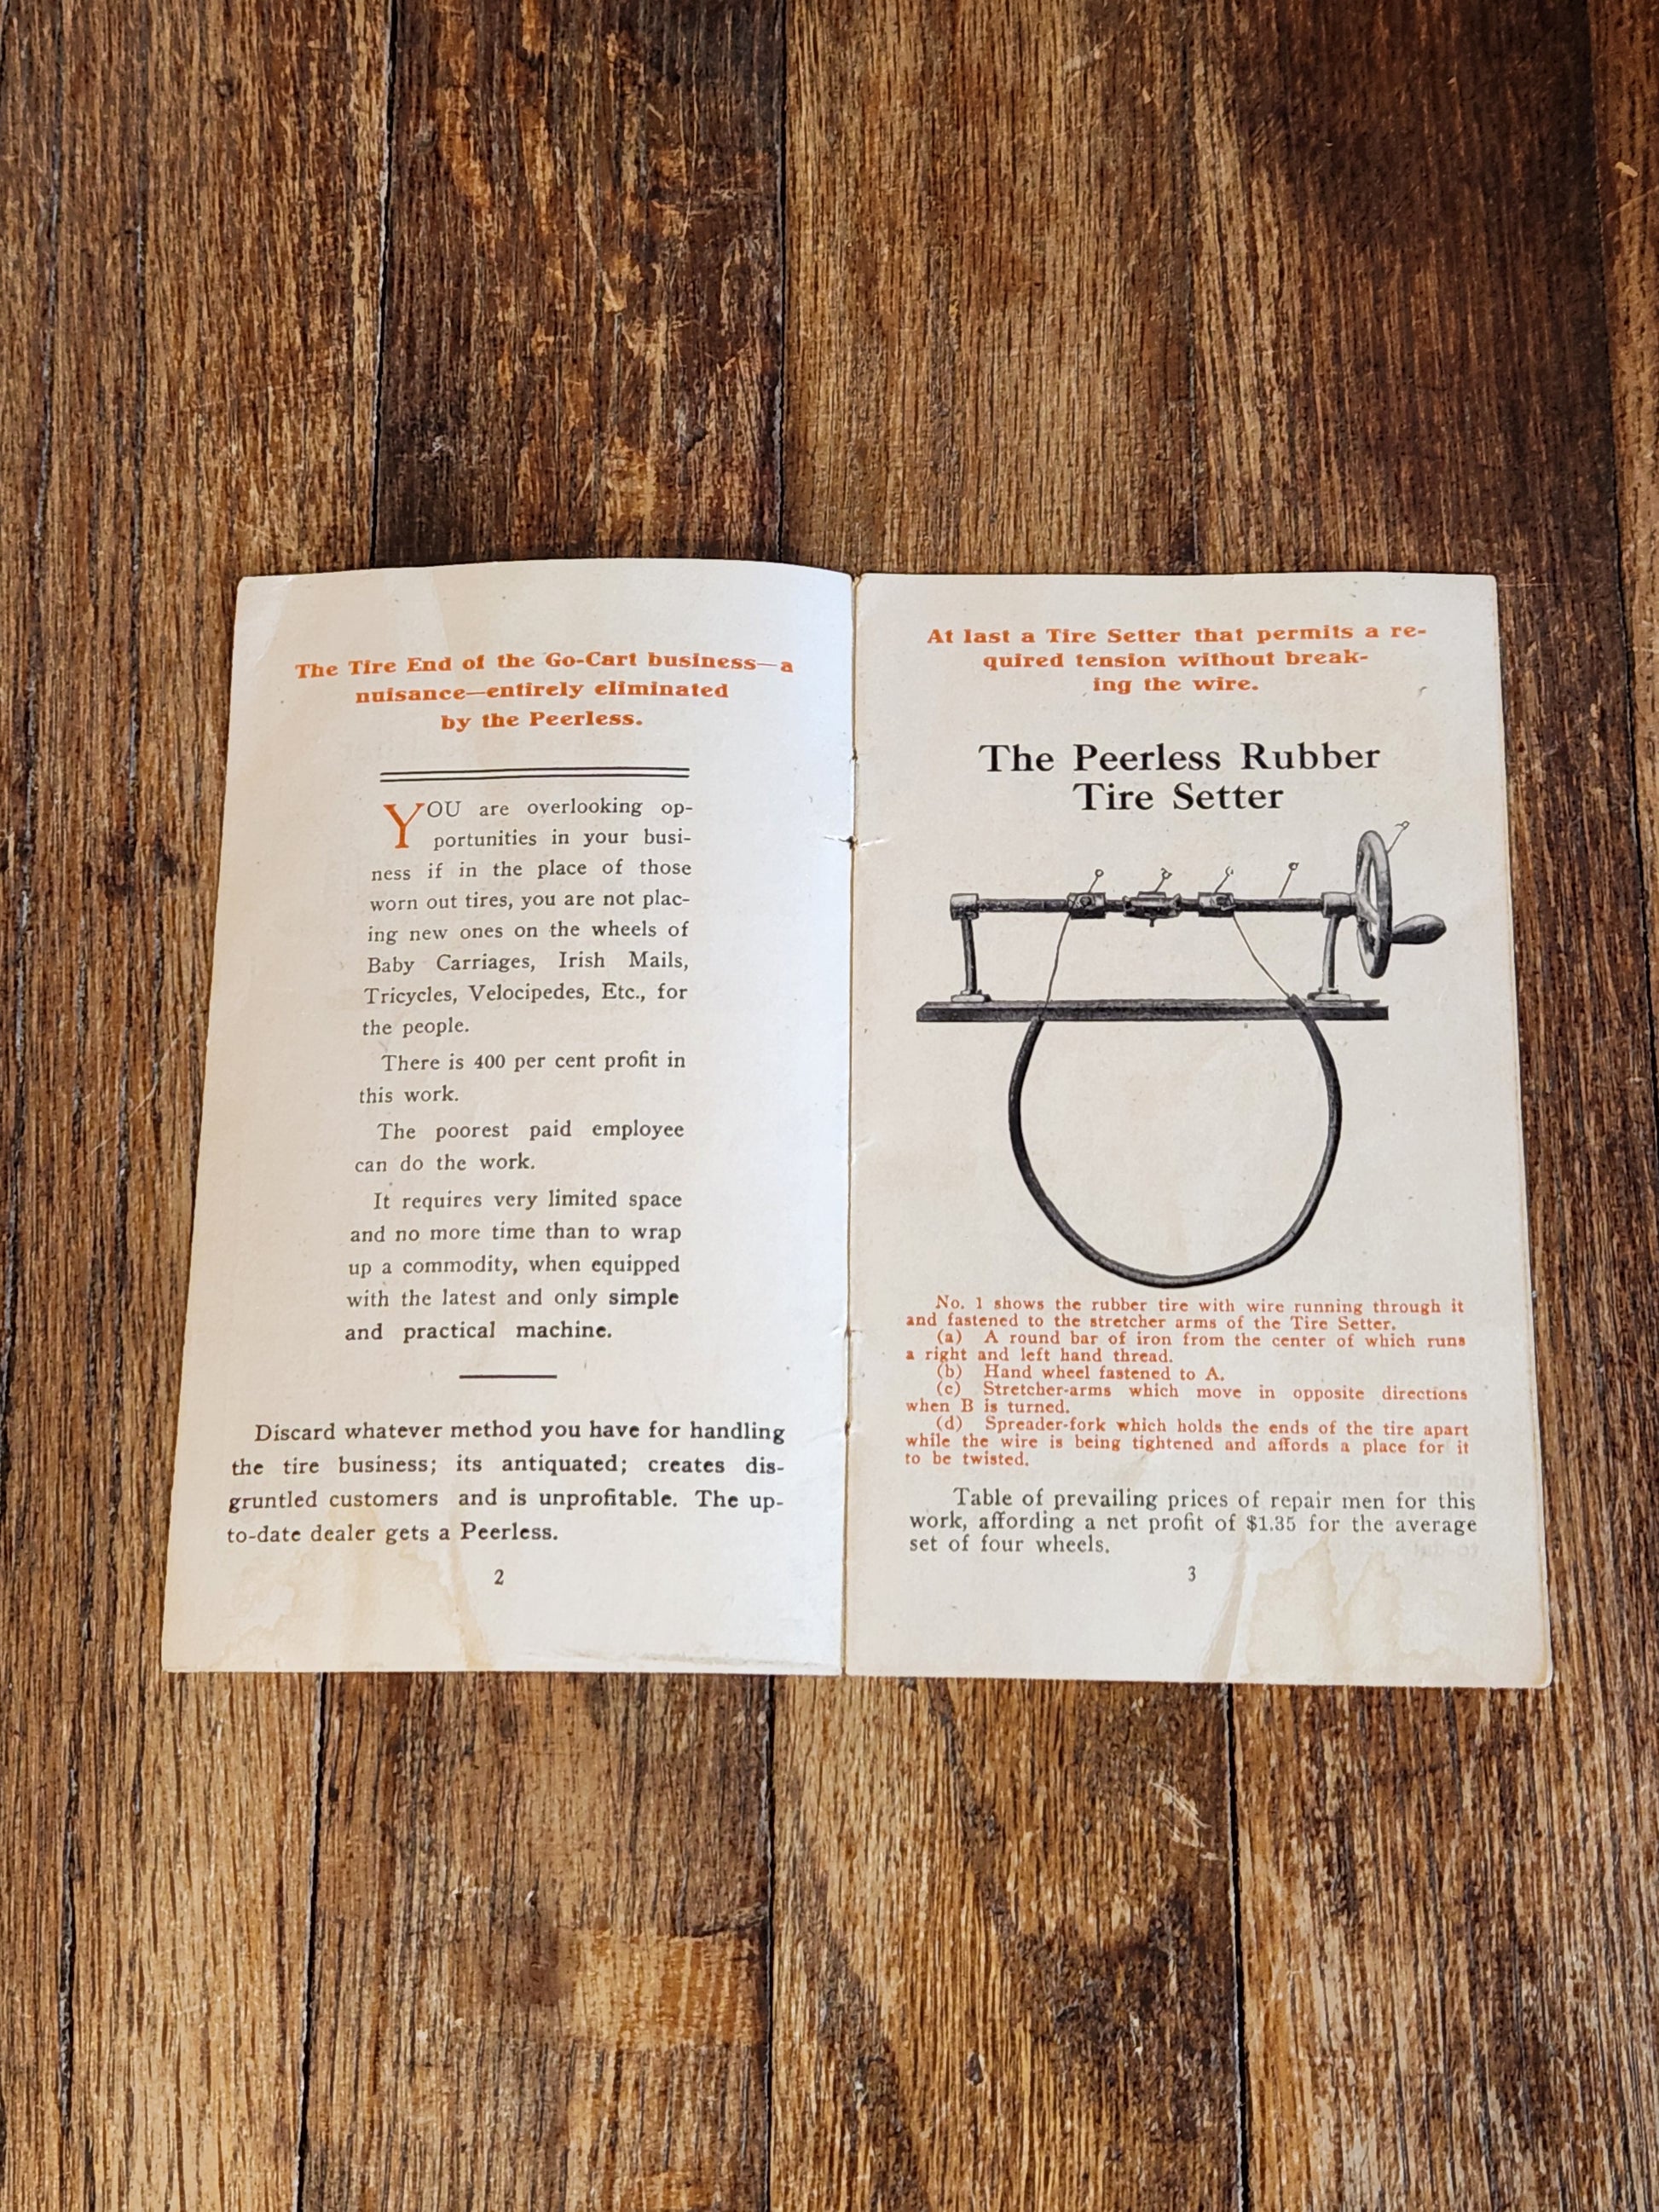 The Tire End of the Go-Cart business—a
nuisance—entirely eliminated
by the Peerless.
YOU are overlooking op-
portunities in your busi-
ness if in the place of those
worn out tires, you are not plac-
ing new ones on the wheels of
Baby Carriages, Irish Mails,
Tricycles, Velocipedes, Etc., for
the people.
There is 400 per cent profit in
this work.
The poorest paid employee
can do the work.
It requires very limited space
and no more time than to wrap
up a commodity, when equipped
with the latest and only simple
and practical machine.
Discard whatever method you have for handling
the tire business; its antiquated; creates dis-
gruntled customers and is unprofitable. The up-
to-date dealer gets a Peerless.
2
At last a Tire Setter that permits a re-
quired tension without break-
ing the wire.
The Peerless Rubber
Tire Setter
No. 1 shows the rubber tire with wire running through it
and fastened to the stretcher arms of the Tire Setter.
(a) A round bar of iron from the center of which runs
a right and left hand thread.
(b) Hand wheel fastened to A.
(c) Stretcher-arms which move in opposite directions
when B is turned.
(d) Spreader-fork which holds the ends of the tire apart
while the wire is being tightened and affords a place for it
to be twisted.
Table of prevailing prices of repair men for this
work, affording a net profit of $1.35 for the average
set of four wheels.
3